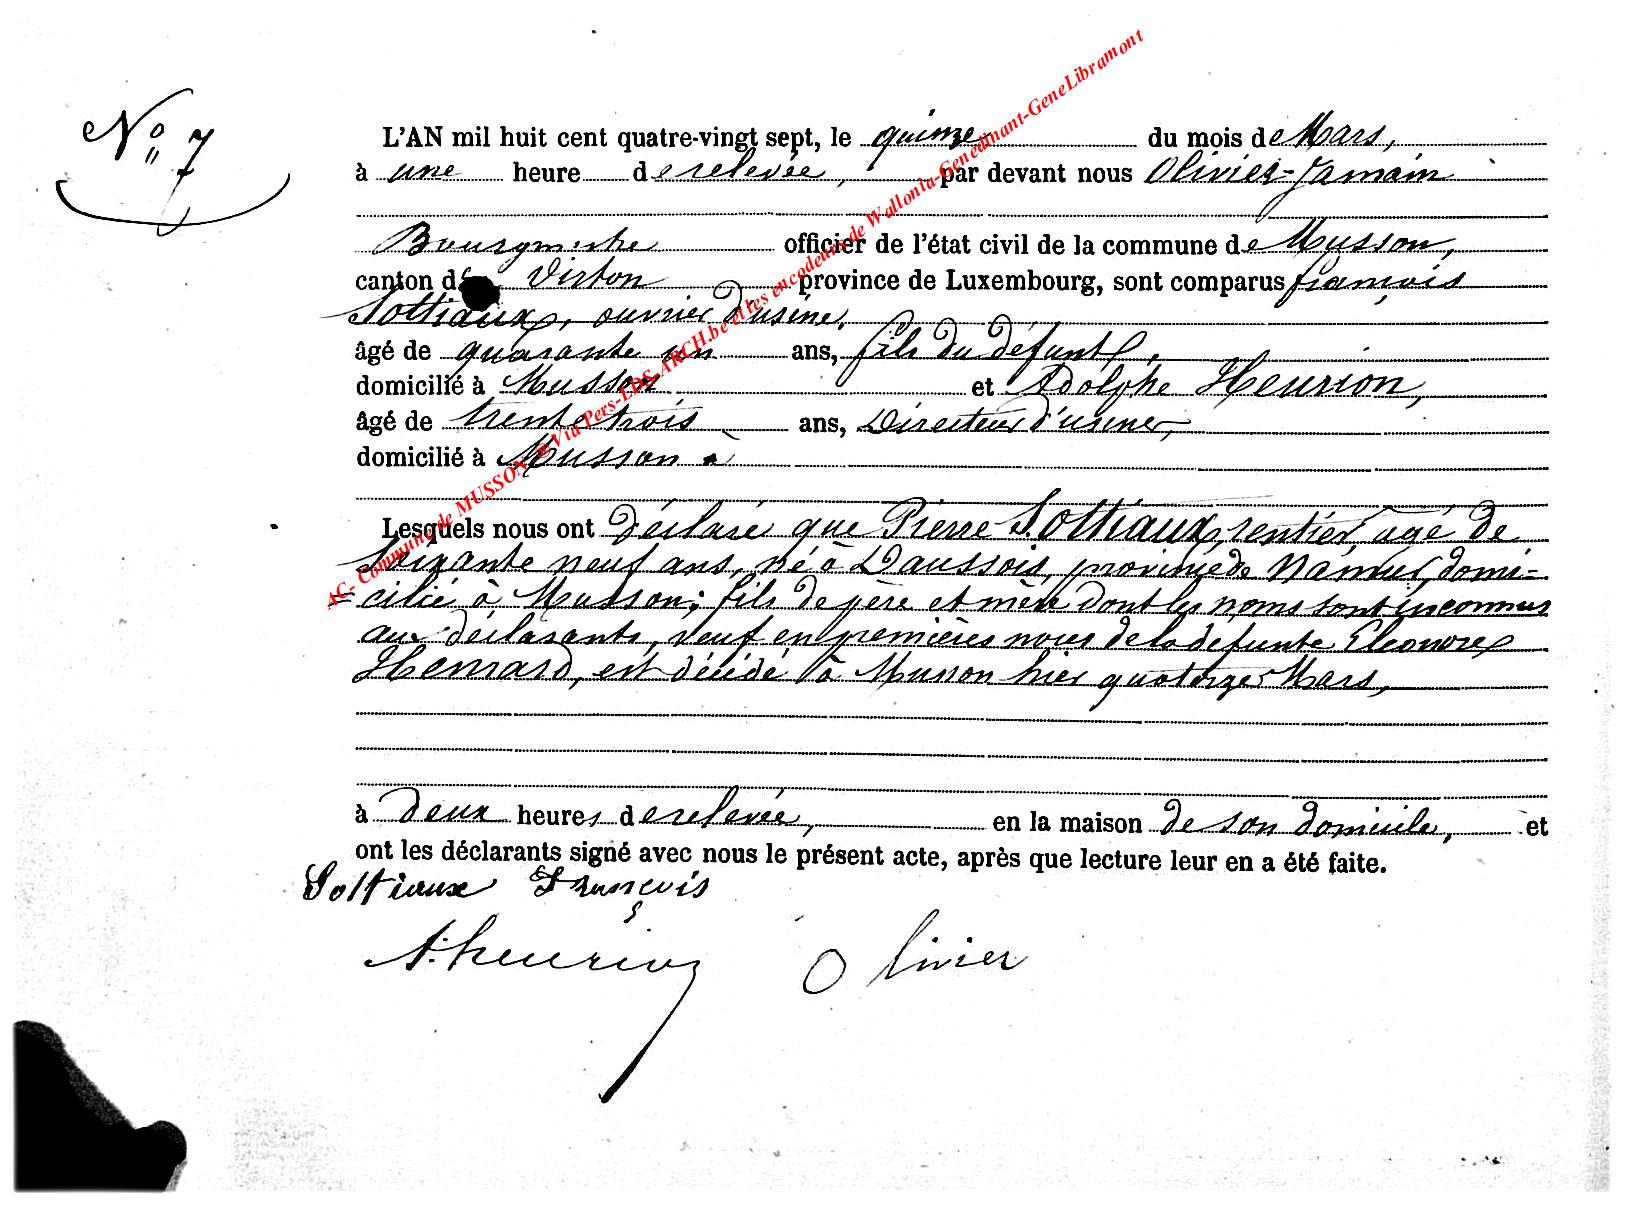 N° 7
L'AN mil huit cent quatre-vingt sept, le quinze du mois de Mars,
à une heure de relevée, par devant nous Olivier-Jamain
Bourgmestre officier de l'état civil de la commune de Musson,
canton de Virton province de Luxembourg, sont comparus françois
Sottiaux, ouvrier d'usine,
âgé de quarante un ans, fils du défunt,
domicilié à Musson et Adolphe Heurion,
âgé de trente trois ans, Directeur d'usines,
domicilié à Musson
Lesquels nous ont déclaré que Pierre Sottiaux, rentier, agé de
soixante neuf ans, né à Daussois, province de Namur, domi-
cilié à Musson; fils de père et mère dont les noms sont inconnus
aux déclarants, veuf en premières noces de la défunte Eleonore
Henrard, est décédé à Musson hier quatorze Mars,
à deux heures de relevée, en la maison de son domicile, et
ont les déclarants signé avec nous le présent acte, après que lecture leur en a été faite.
Sottiaux François
A. heurion Olivier
AC- Commune de MUSSON @ Via Pers-LDS-ARCH.be et les encodeurs de Wallonia-Genedinant-GeneLibramont